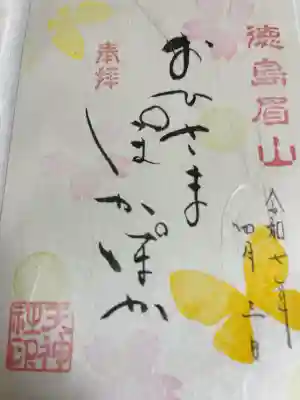 徳島眉山
奉拝
おひさま
ぽかぽか
令和七年
四月三日
天神
社印